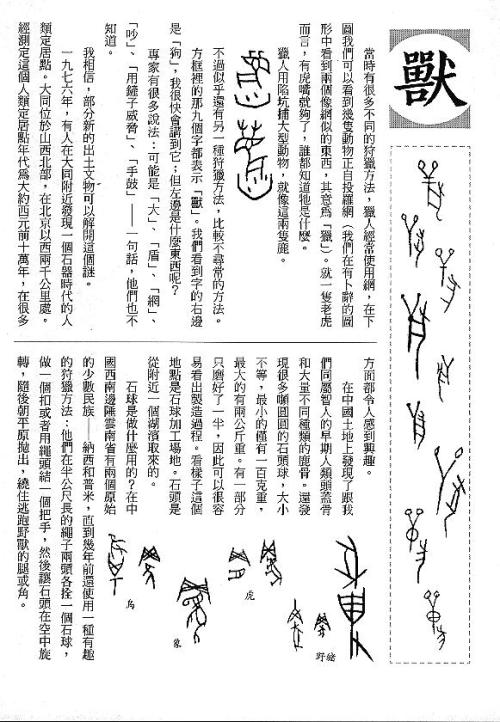 獸
當時有很多不同的狩獵方法，獵人經常使用網，在下
圖我們可以看到幾隻動物正自投羅網（我們在有卜辭的圖
形中看到兩個像網似的東西，其意為「獵」）。就一隻老虎
而言，有虎嘴就夠了，誰都知道牠是什麼。
獵人用陷坑捕大型動物，就像這兩隻鹿。
不過似乎還有另一種狩獵方法，比較不尋常的方法。
方框裡的那九個字都表示「獸」。我們看到字的右邊
是「狗」，我很快會講到它；但左邊是什麼東西呢？
專家有很多說法：可能是「大」、「盾」、「網」、
「吵」、「用鏟子威脅」、「手鼓」——一句話，他們也不
知道。
我相信，部分新的出土文物可以解開這個謎。
一九七六年，有人在大同附近發現一個石器時代的人
類定居點。大同位於山西北部，在北京以西兩千公里處。
經測定這個人類定居點年代為大約西元前十萬年，在很多
方面都令人感到興趣。
在中國土地上發現了跟我
們同屬智人的早期人類頭蓋骨
和大量不同種類的鹿骨。還發
現很多頗圓圓的石頭球，大小
不等，最小的僅有一百克重，
最大的有兩公斤重。有一部分
只磨好了一半，因此可以很容
易看出製造過程。看樣子這個
地點是石球加工場地。石頭是
從附近一個湖濱取來的。
石球是做什麼用的？在中
國西南邊陲雲南省有兩個原始
的少數民族——納西和普米，直到幾年前還使用一種有趣
的狩獵方法：他們在半公尺長的繩子兩頭各拴一個石球，
做一個扣或者用繩頭結一個把手，然後讓石頭在空中旋
轉，隨後朝平原拋出，繞住逃跑野獸的腿或角。
野豬
虎
象